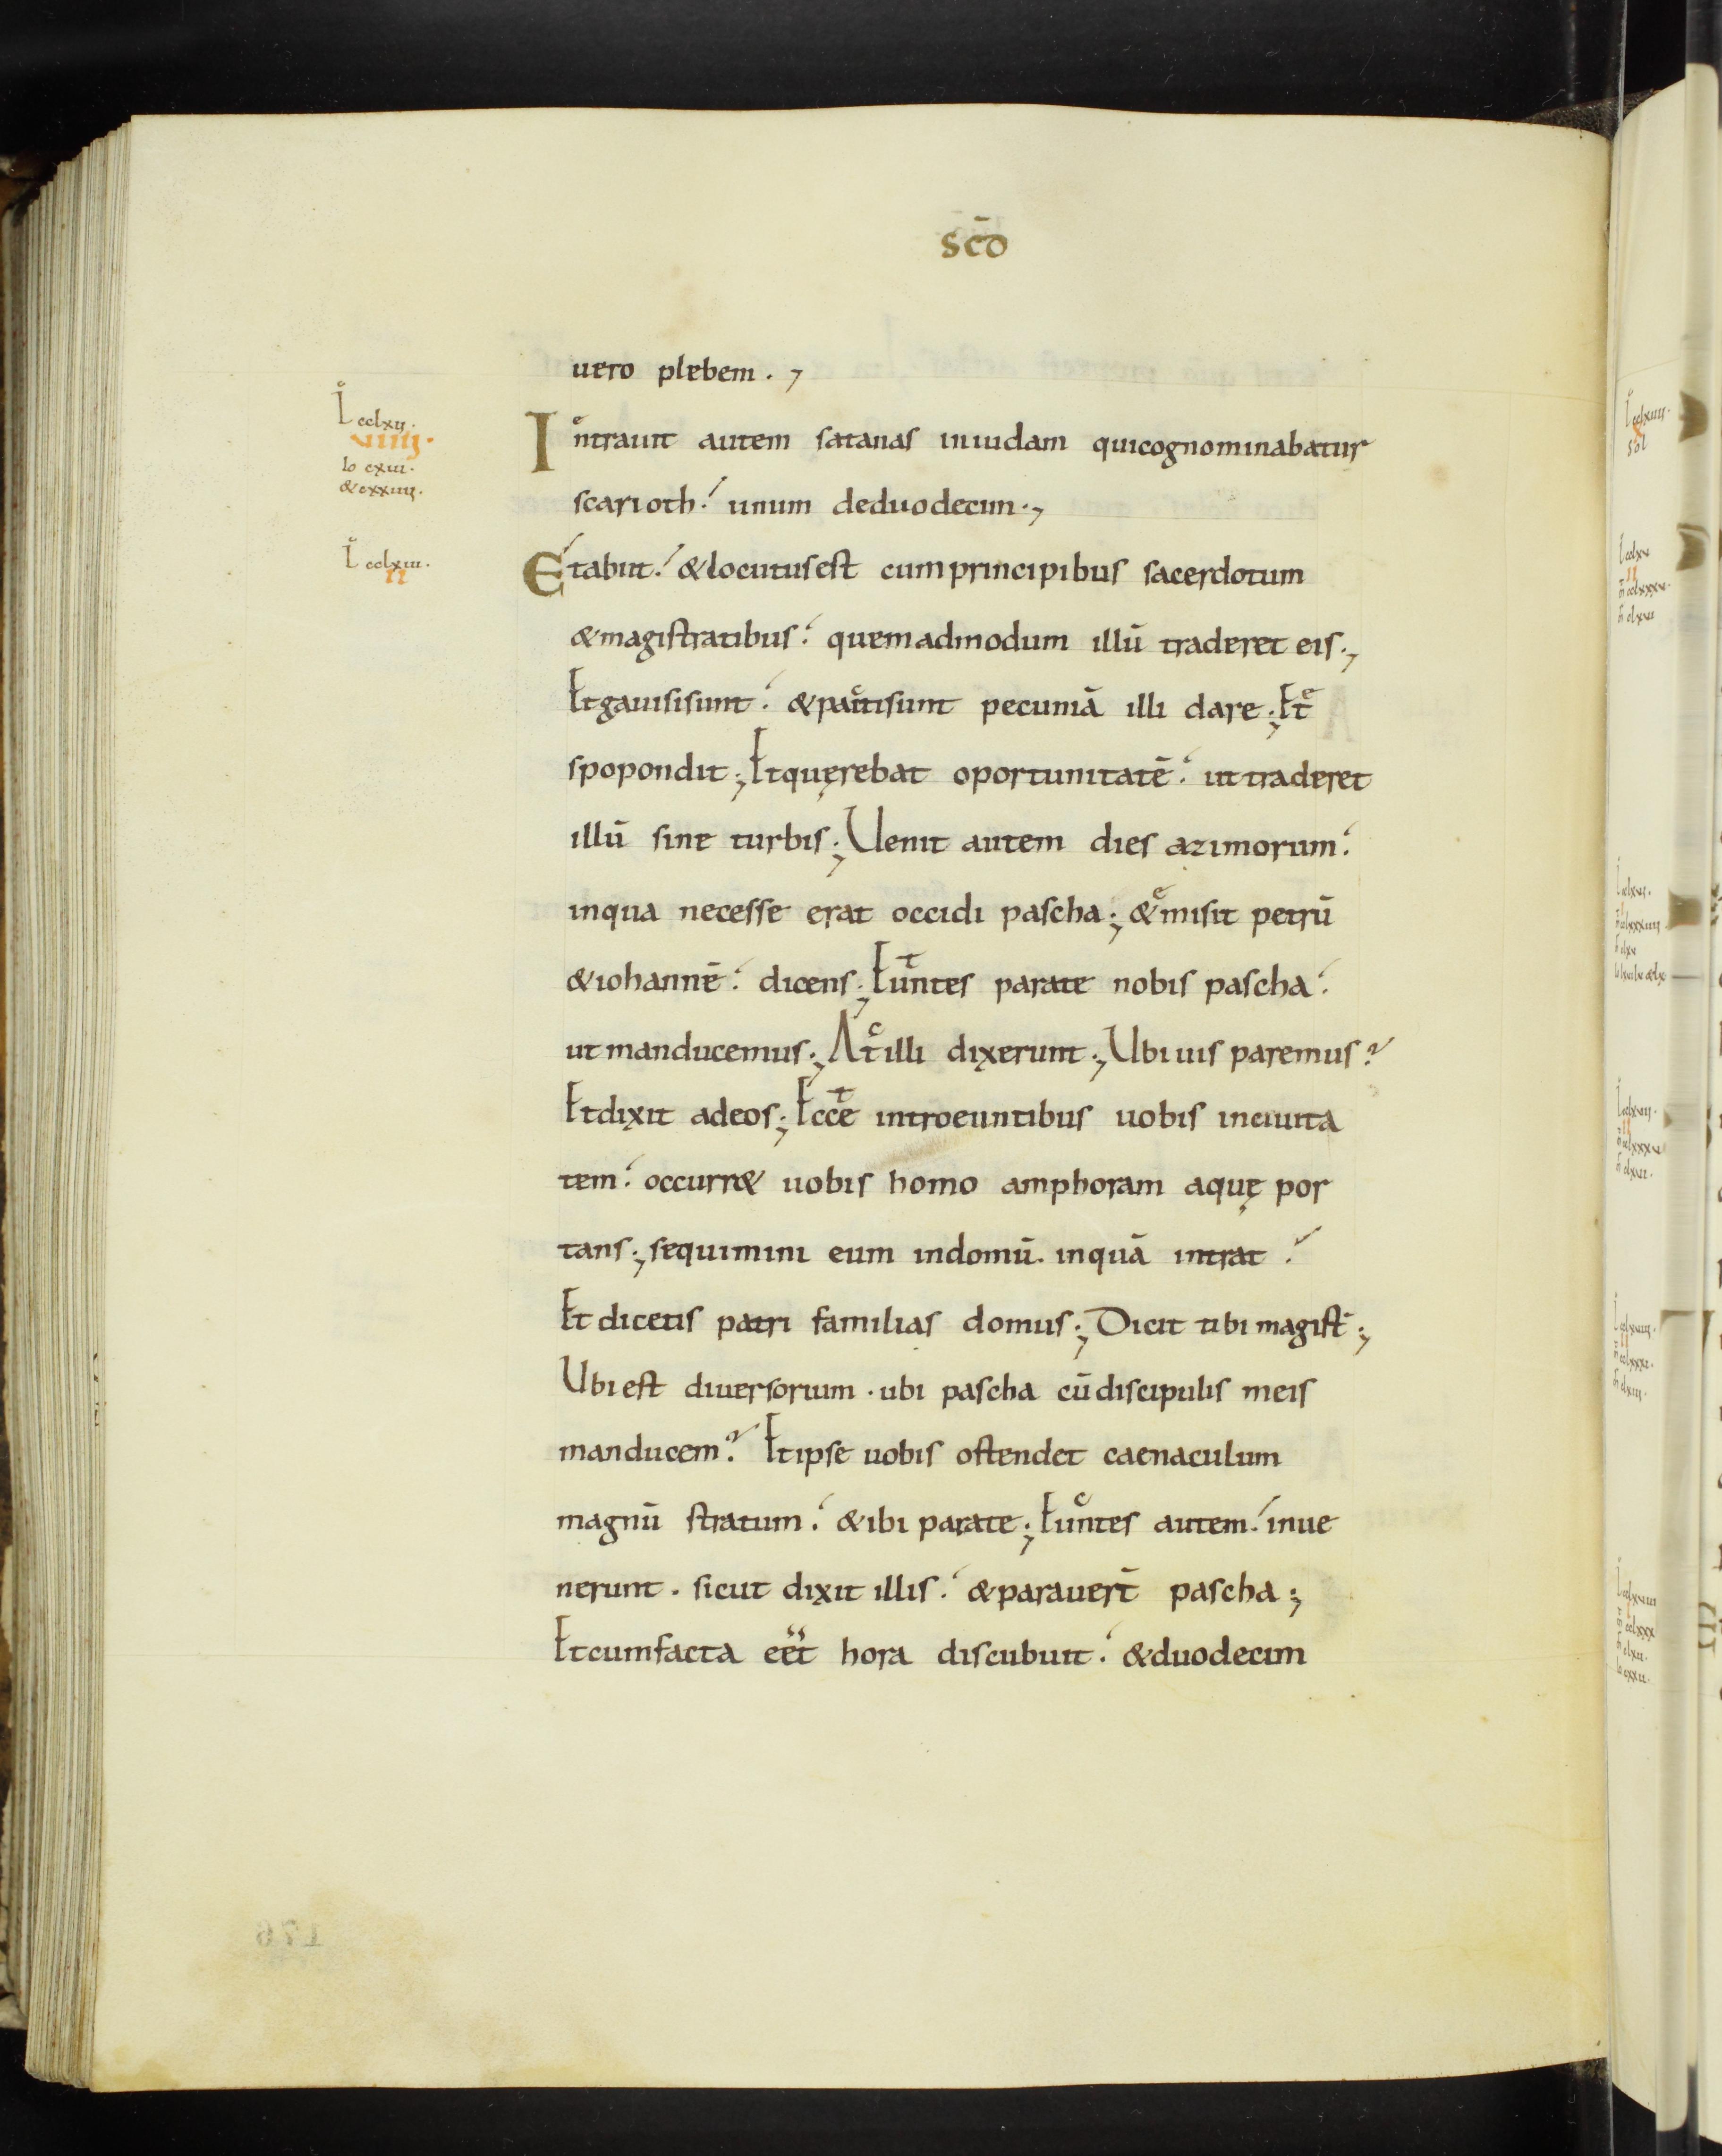 scdo
uero plebem.,
L cclxii.
Intrauit autem satanas in iudam qui cognominabatur
VIIII.
io cxiii.
& cxxiiii.
scarioth. unum de duodecim.,
Et abiit. & locutus est cum principibus sacerdotum
L cclxiii.
II
& magistratibus. quemadmodum illū traderet eis.,
Et gauisi sunt. & pacti sunt pecuniā illi dare., Et
spopondit., Et quęrebat oportunitatē. ut traderet
illū sine turbis., Uenit autem dies azimorum.
in qua necesse erat occidi pascha., & misit petrū
& iohannē. dicens., Euntes parate nobis pascha.
ut manducemus., At illi dixerunt., Ubi uis paremus?
Et dixit ad eos., Ecce introeuntibus uobis in ciuita
tem. occurr& uobis homo amphoram aquę por
tans., sequimini eum in domū. in quā intrat.
Et dicetis patri familias domus., Dicit tibi magist̄.,
Ubi est diuersorium. ubi pascha cū discipulis meis
manducem? Et ipse uobis ostendet caenaculum
magnū stratum. & ibi parate., Euntes autem. inue
nerunt. sicut dixit illis. & parauer̄t pascha.,
Et cum facta eēt hora discubuit. & duodecim
176